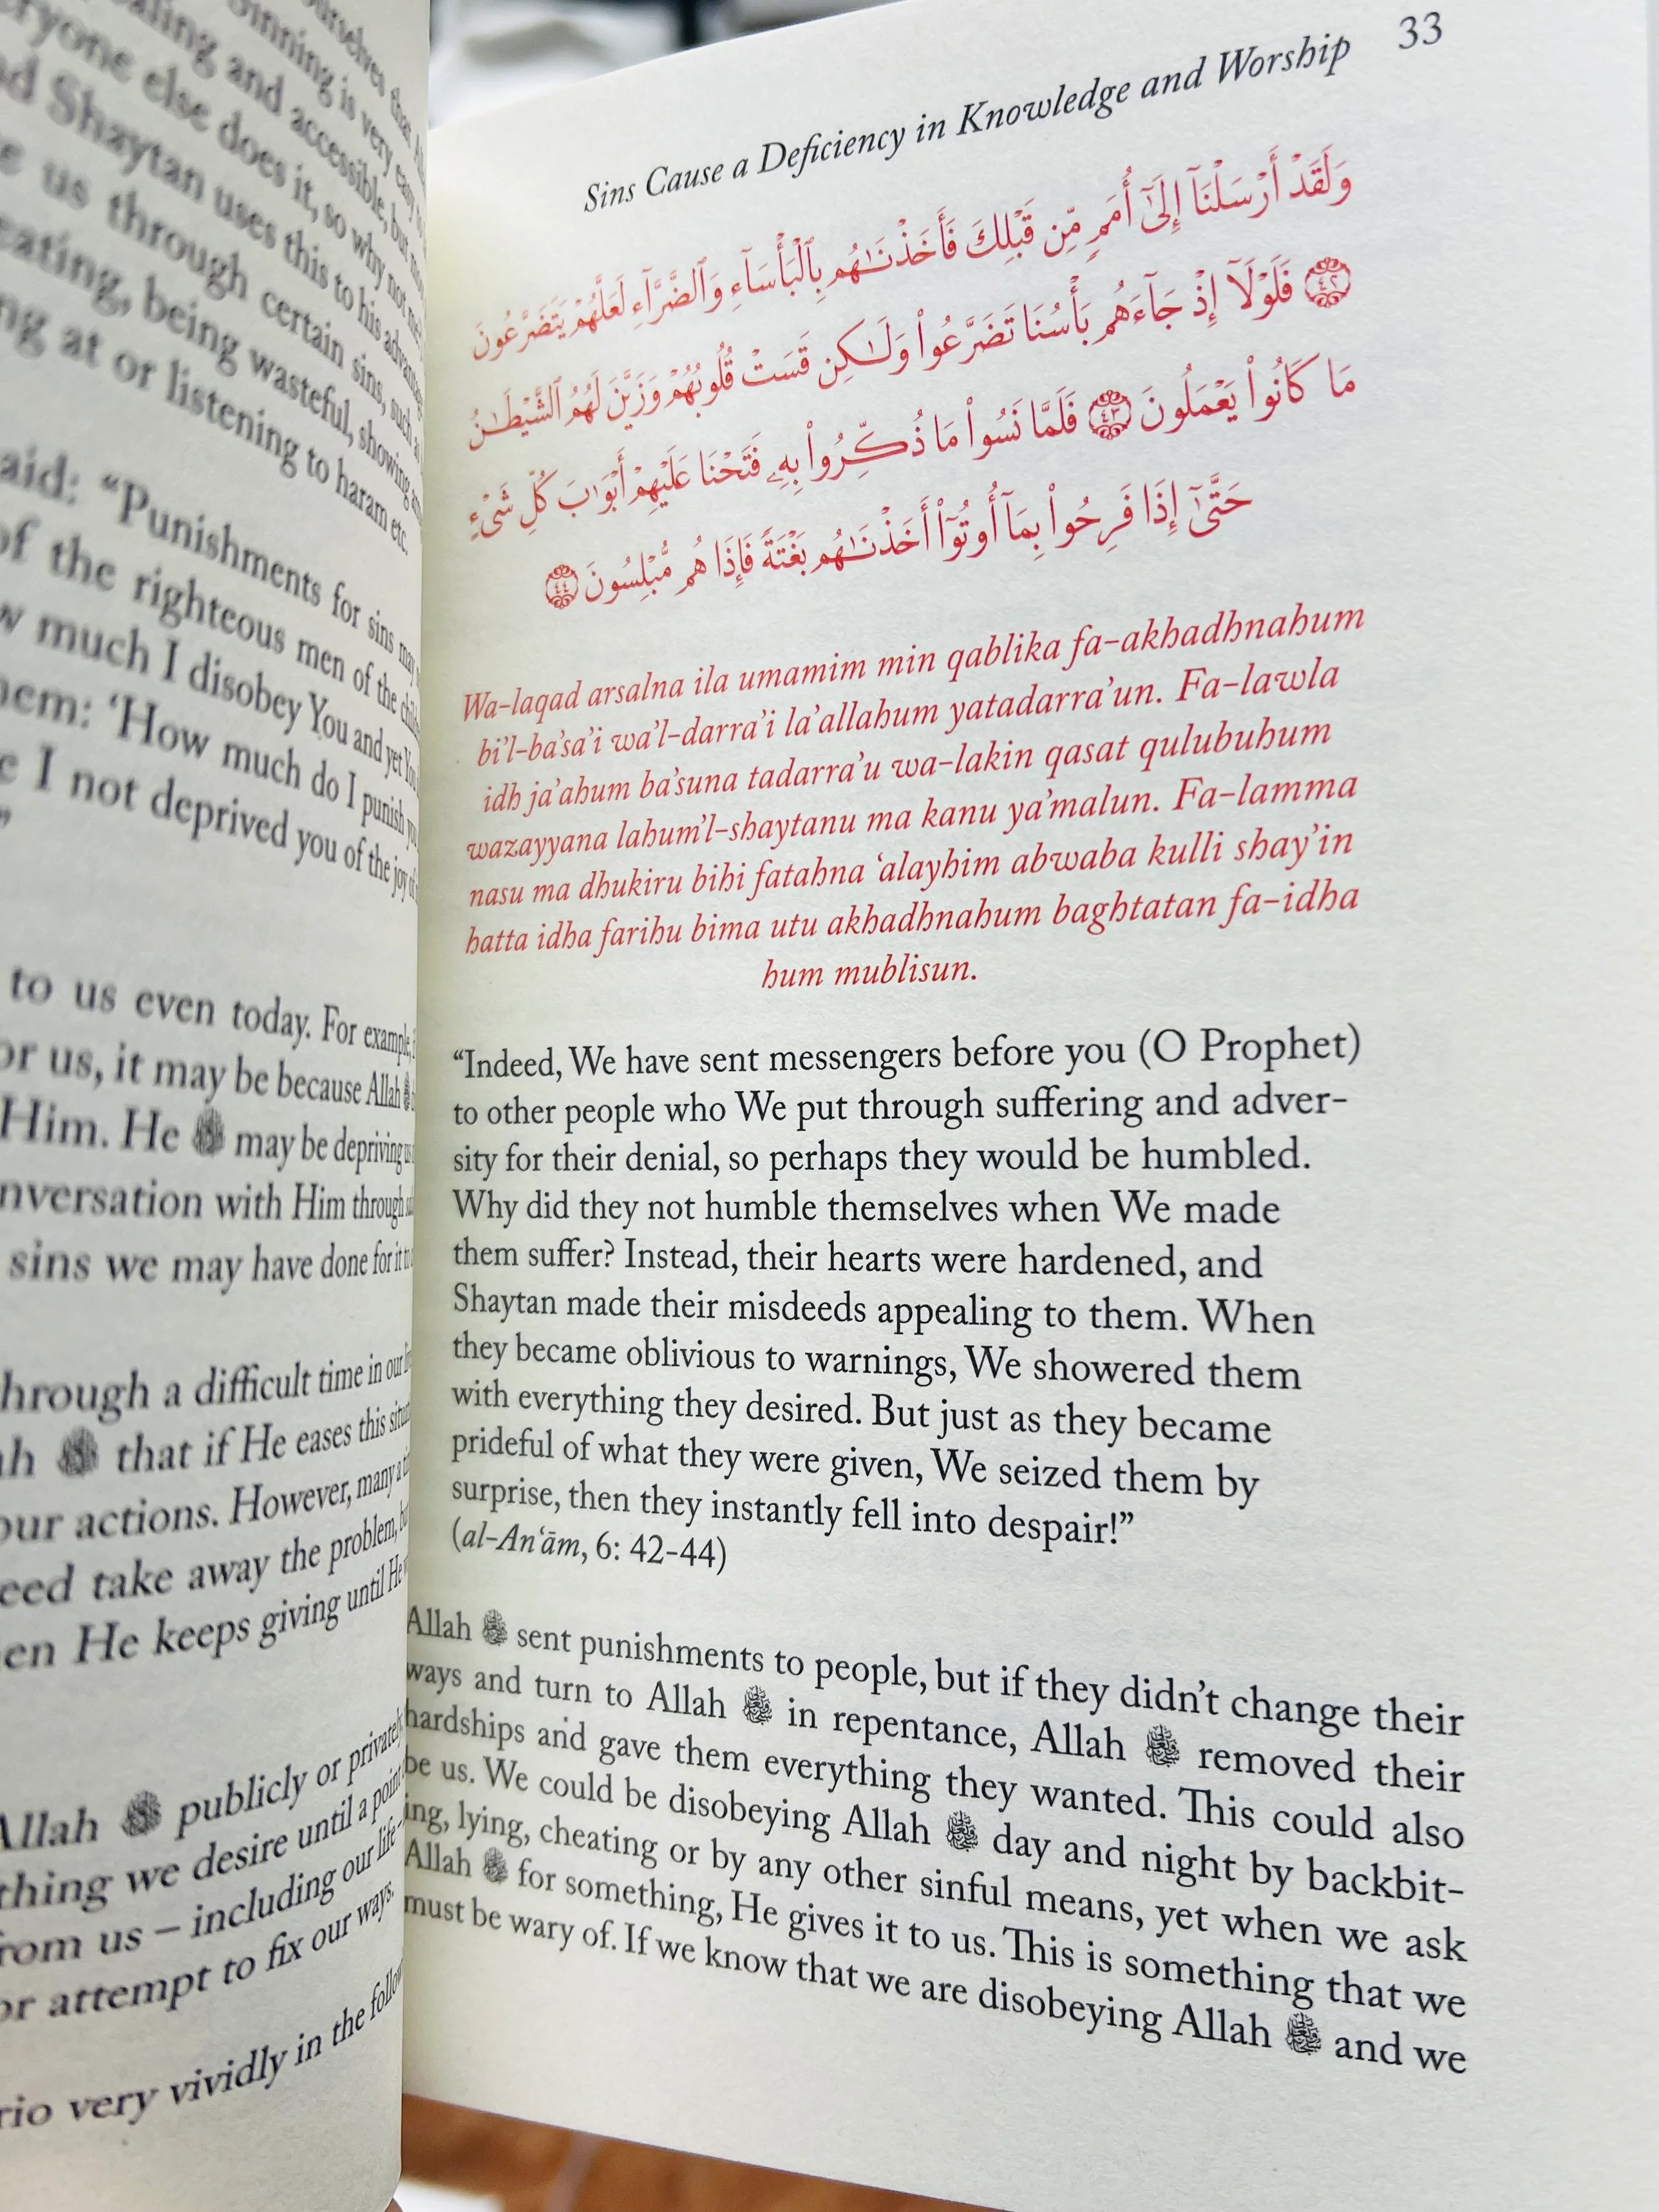 ourselves that
sinning is very easy
ealing and accessible, but
eryone else does it, so why not me?
nd Shaytan uses this to his advantage
us through certain sins, such
eating, being wasteful, showing
ng at or listening to haram etc.
aid: “Punishments for sins may
of the righteous men of the
w much I disobey You and yet You
hem: ‘How much do I punish you
I not deprived you of the joy of
”
to us even today. For example,
or us, it may be because Allah ﷻ
Him. He ﷻ may be depriving us
nversation with Him through
sins we may have done for it to
hrough a difficult time in our
ah ﷻ that if He eases this
our actions. However, many a
eed take away the problem,
en He keeps giving until He
Allah ﷻ publicly or privately
thing we desire until a point
rom us – including our life-
or attempt to fix our ways.
rio very vividly in the
Sins Cause a Deficiency in Knowledge and Worship 33
وَلَقَدْ أَرْسَلْنَآ إِلَىٰٓ أُمَمٍ مِّن قَبْلِكَ فَأَخَذْنَـٰهُم بِٱلْبَأْسَآءِ وَٱلضَّرَّآءِ لَعَلَّهُمْ يَتَضَرَّعُونَ
﴿٤٢﴾ فَلَوْلَآ إِذْ جَآءَهُم بَأْسُنَا تَضَرَّعُوا۟ وَلَـٰكِن قَسَتْ قُلُوبُهُمْ وَزَيَّنَ لَهُمُ ٱلشَّيْطَـٰنُ
مَا كَانُوا۟ يَعْمَلُونَ ﴿٤٣﴾ فَلَمَّا نَسُوا۟ مَا ذُكِّرُوا۟ بِهِۦ فَتَحْنَا عَلَيْهِمْ أَبْوَٰبَ كُلِّ شَىْءٍ
حَتَّىٰٓ إِذَا فَرِحُوا۟ بِمَآ أُوتُوٓا۟ أَخَذْنَـٰهُم بَغْتَةً فَإِذَا هُم مُّبْلِسُونَ ﴿٤٤﴾
Wa-laqad arsalna ila umamim min qablika fa-akhadhnahum
bi’l-ba’sa’i wa’l-darra’i la’allahum yatadarra’un. Fa-lawla
idh ja’ahum ba’suna tadarra’u wa-lakin qasat qulubuhum
wazayyana lahum’l-shaytanu ma kanu ya’malun. Fa-lamma
nasu ma dhukiru bihi fatahna ‘alayhim abwaba kulli shay’in
hatta idha farihu bima utu akhadhnahum baghtatan fa-idha
hum mublisun.
“Indeed, We have sent messengers before you (O Prophet)
to other people who We put through suffering and adver-
sity for their denial, so perhaps they would be humbled.
Why did they not humble themselves when We made
them suffer? Instead, their hearts were hardened, and
Shaytan made their misdeeds appealing to them. When
they became oblivious to warnings, We showered them
with everything they desired. But just as they became
prideful of what they were given, We seized them by
surprise, then they instantly fell into despair!”
(al-An‘ām, 6: 42-44)
Allah ﷻ sent punishments to people, but if they didn’t change their
ways and turn to Allah ﷻ in repentance, Allah ﷻ removed their
hardships and gave them everything they wanted. This could also
be us. We could be disobeying Allah ﷻ day and night by backbit-
ing, lying, cheating or by any other sinful means, yet when we ask
Allah ﷻ for something, He gives it to us. This is something that we
must be wary of. If we know that we are disobeying Allah ﷻ and we